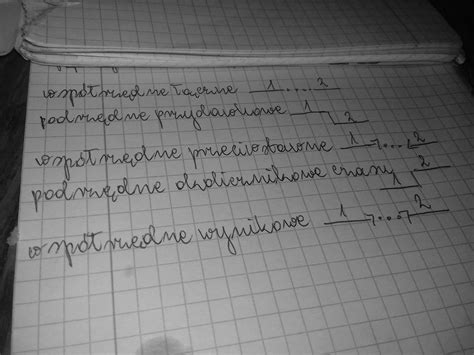 współrzędne łączne 1 .... 2
podrzędne przydawkowe 1 2
współrzędne przeciwstawne 1 .... 2
podrzędne okolicznikowe czasu 1 2
współrzędne wynikowe 1 .... 2